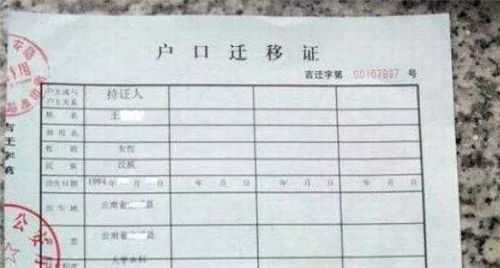 户口迁移证
吉迁字第 00167897 号
户主或与
户主关系 持证人
姓名 王
曾用名
性别 女性
民族 汉族
出生日期 1994年 月 日 年 月 日 年 月 日 年 月 日
出生地 云南省 县
籍贯 云南省 县
大学本科